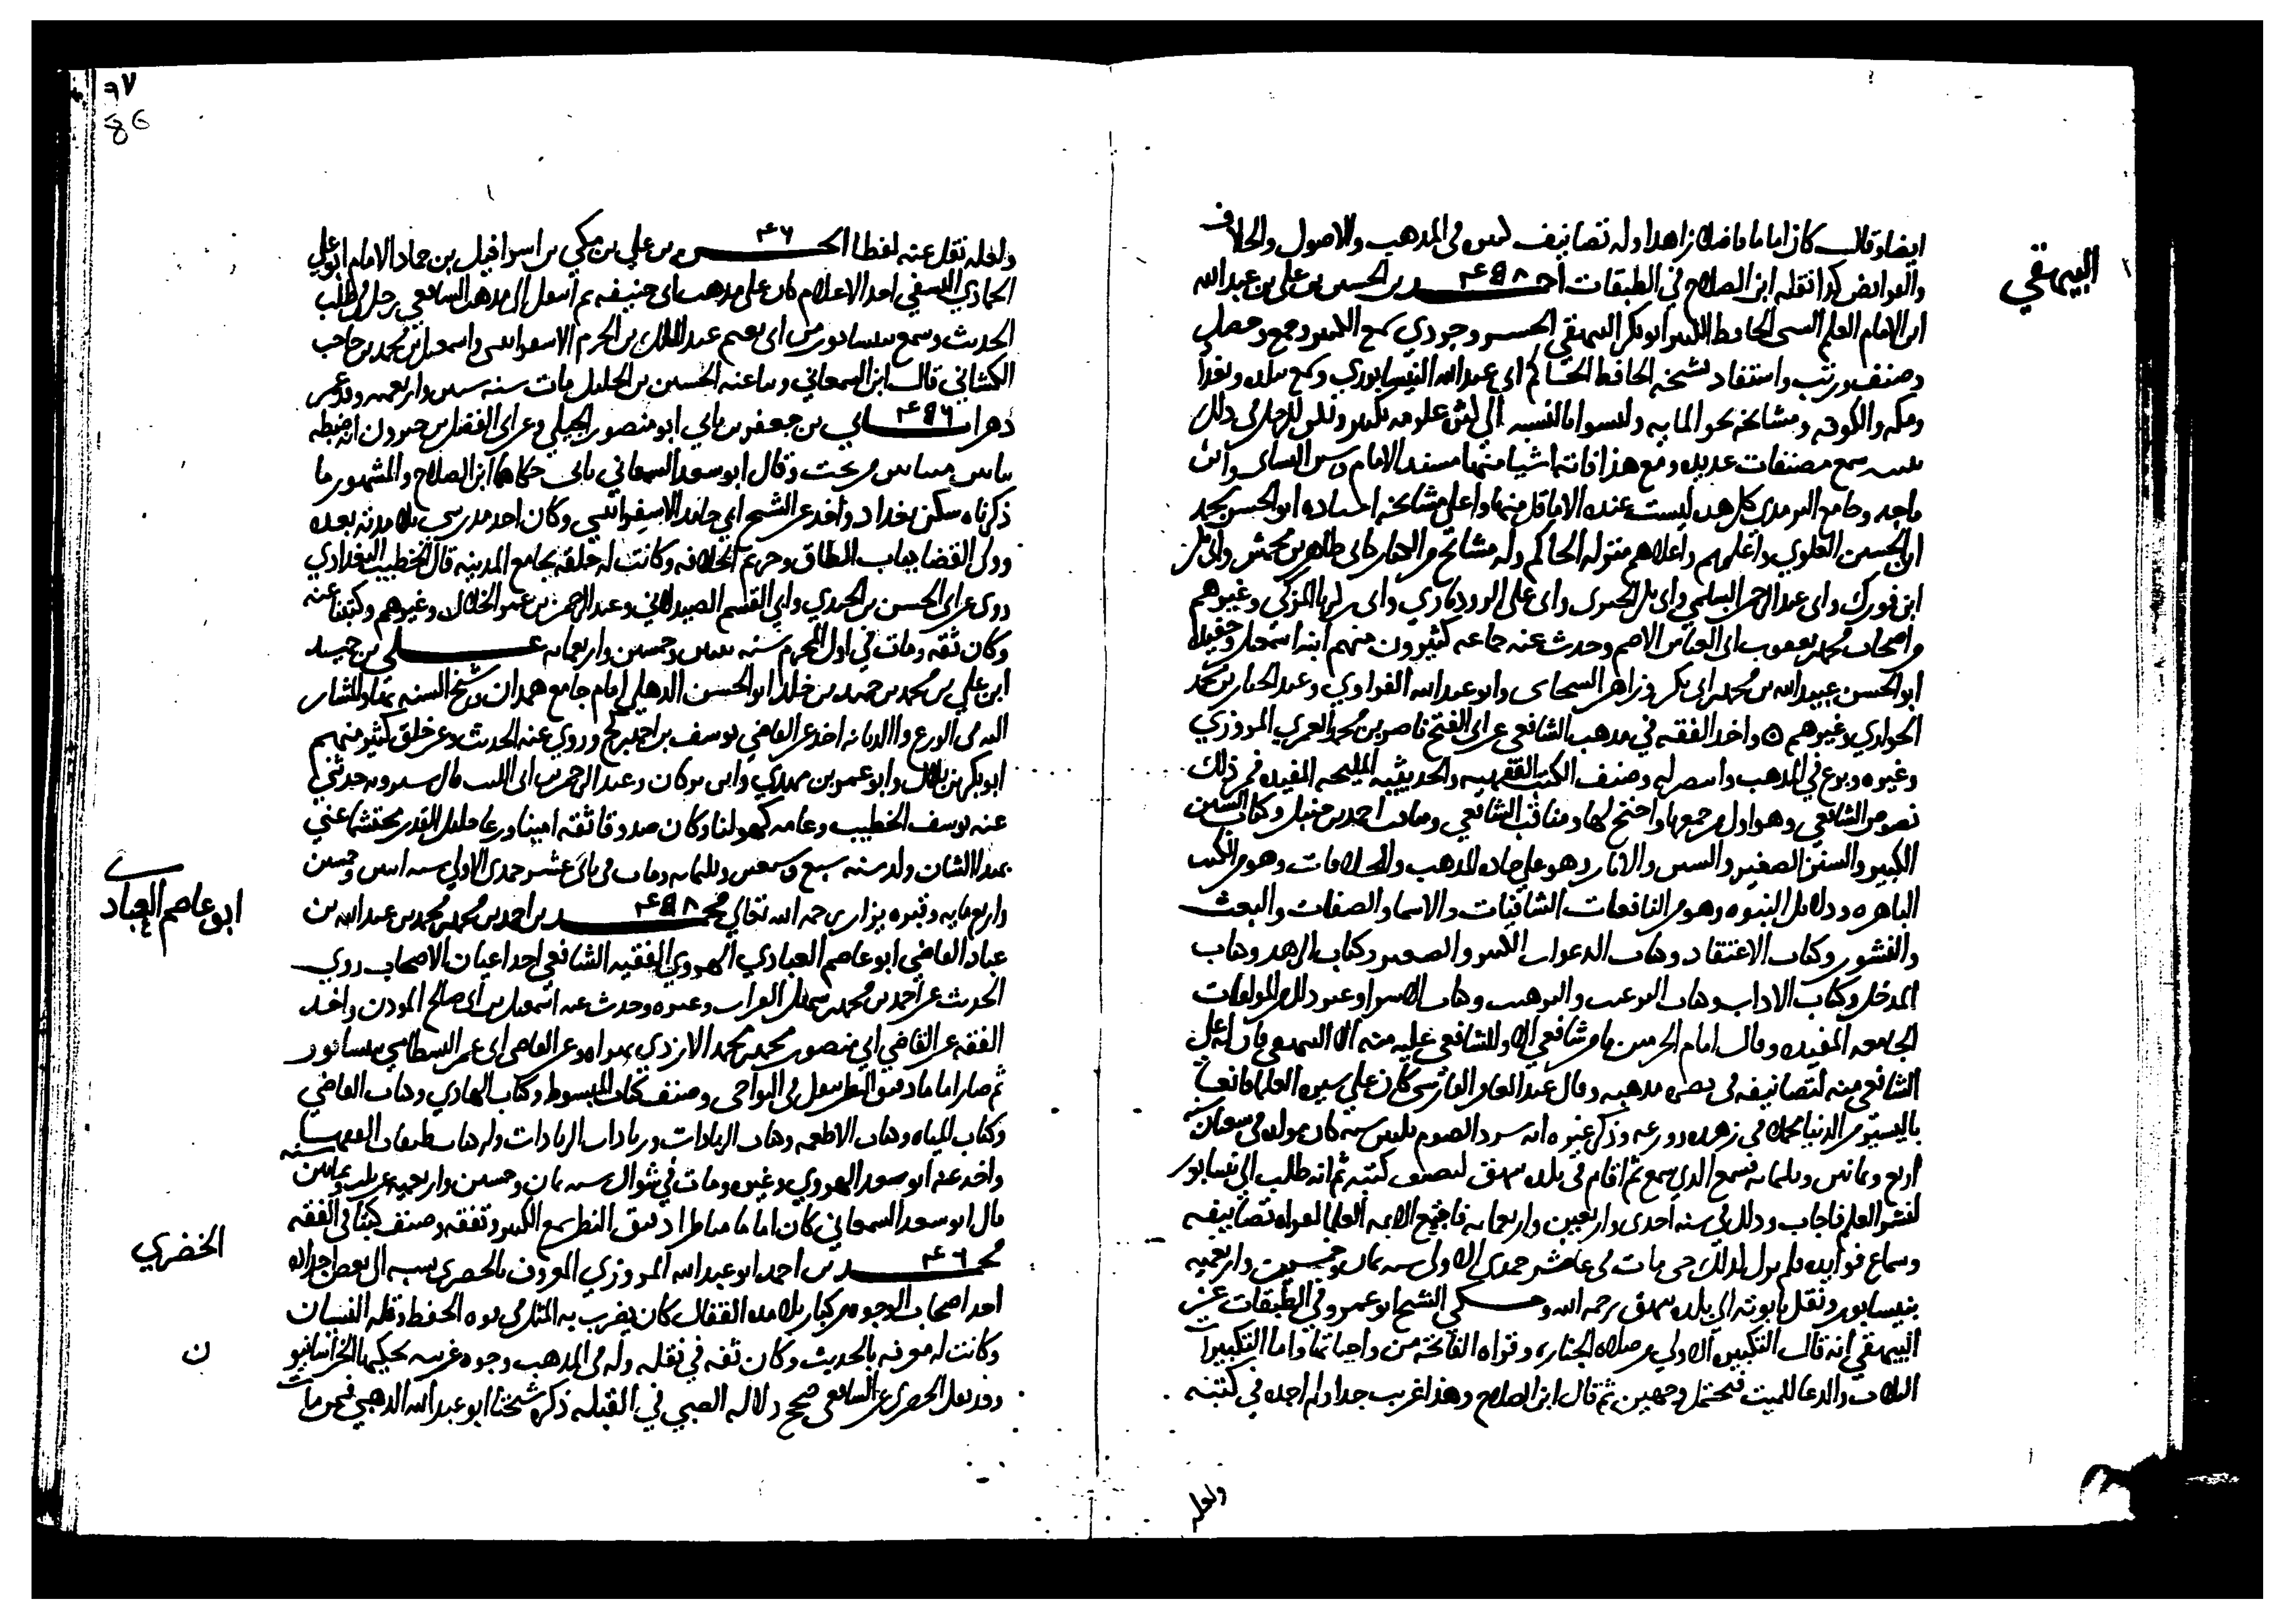 البيهقي
ايضا وقال كان اماما فاضلا زاهدا وله تصانيف كثيره في المذهب والاصول والخلاف
والفرائض كذا نقله ابن الصلاح في الطبقات احمد بن الحسين بن علي بن عبد الله
ابن الامام العلم الحافظ الكبير ابو بكر البيهقي الخسروجردي سمع الكثير وجمع وحصل
وصنف ورتب واستفاد بشيخه الحافظ الحاكم ابي عبد الله النيسابوري وسمع ببلده وبغداد
ومكه والكوفه ومشايخه نحو المايه وليسوا بالنسبه الى علومه بكثير ولكن في ذلك
سمع مصنفات عديده ومع هذا فاته اشيا منها مسند الامام النسائي وابن
ماجه وجامع الترمذي كل هذه ليست عنده الا ما قل منها واعلى مشايخه ابو الحسن محمد
ابن الحسين العلوي واعلاهم منزله الحاكم وله مشايخ كابي طاهر بن محمش وابي بكر
ابن فورك وابي عبد الرحمن السلمي وابي علي الروذباري وابي زكريا المزكي وغيرهم
من اصحاب محمد بن يعقوب ابي العباس الاصم وحدث عنه جماعه كثيرون منهم ابنه اسمعيل وحفيده
ابو الحسن عبيد الله بن محمد بن ابي بكر وزاهر الشحامي وابو عبد الله الفراوي وعبد الجبار بن محمد
الخواري وغيرهم ٥ واخذ الفقه في مذهب الشافعي عن ابي الفتح ناصر بن محمد العمري المروزي
وغيره وبرع في المذهب وانتصر له وصنف الكتب الفقهيه والحديثيه المليحه المفيده فمن ذلك
نصوص الشافعي وهو اول من جمعها واحتج لها ومناقب الشافعي ومناقب احمد بن حنبل وكتاب السنن
الكبير والسنن الصغير والسنن والاثار وهو على جاده المذهب والخلافيات وهو من الكتب
الباهره ودلائل النبوه وهو من النافعات الشافيات والاسما والصفات والبعث
والنشور وكتاب الاعتقاد وكتاب الدعوات الكبير والصغير وكتاب الزهد وكتاب
المدخل وكتاب الاداب وكتاب الترغيب والترهيب وكتاب الاسرا وغير ذلك من المولفات
الجامعه المفيده وقال امام الحرمين ما من شافعي الا وللشافعي عليه منه الا البيهقي فان له على
الشافعي منه لتصانيفه في نصره مذهبه وقال عبد الغافر الفارسي كان على سيره العلما قانعا
باليسير من الدنيا متجملا في زهده وورعه وذكر غيره انه سرد الصوم ثلثين سنه كان مولده في شعبان سنه
اربع وثمانين وثلثمايه فسمع الذي سمع ثم اقام في بلده بيهق لتصنيف كتبه ثم انه طلب الى نيسابور
لنشر العلم فاجاب وذلك في سنه احدى واربعين واربعمايه فاجتمع الايمه العلما لقراه تصانيفه
وسماع فوايده فلم يزل كذلك حتى مات في عاشر جمدى الاولى سنه ثمان وخمسين واربعمايه
بنيسابور ونقل تابوته الى بلده بيهق رحمه الله وحكى الشيخ ابو عمرو في الطبقات عن
البيهقي انه قال التكبيره الاولى من صلاه الجنازه وقراه الفاتحه من واجباتها واما التكبيرات
الثلاث والدعا للميت فيحتمل وجهين ثم قال ابن الصلاح وهذا غريب جدا ولم اجده في كتبه
ولعله
٩٧
86
ولعله نقل عنه لفظا الحسن بن علي بن مكي بن اسرافيل بن حماد الامام ابو علي
الحمادي النسفي احد الاعلام كان على مذهب ابي حنيفه ثم انتقل الى مذهب الشافعي رحل في طلب
الحديث وسمع بنيسابور من ابي نعيم عبد الملك بن الحسن الاسفرايني واسمعيل بن محمد بن حاجب
الكشاني قال ابن السمعاني وثنا عنه الحسين بن الخليل مات سنه ستين واربعمايه وقد عمر
دهرا ٤٦ ٤٥٢ باي بن جعفر بن باي ابو منصور الجيلي وعن ابي الفضل بن خيرون انه ضبطه
وقال ابو سعد السمعاني باي حكاهما ابن الصلاح والمشهور ما
ذكرناه سكن بغداد واخذ عن الشيخ ابي حامد الاسفرايني وكان احد مدرسي تلامذته بعده
وولي القضا بباب الطاق وحريم الخلافه وكانت له حلقه بجامع المدينه قال الخطيب البغدادي
روى عن ابي الحسن بن الجندي وابي القسم الصيدلاني وعبد الرحمن بن عمر الخلال وغيرهم وكتبنا عنه
وكان ثقه ومات في اول المحرم سنه اثنتين وخمسين واربعمايه علي بن حميد
ابن علي بن محمد بن حميد بن خالد ابو الحسن الذهلي امام جامع همدان وشيخ السنه بها والمشار
اليه في الورع والديانه اخذ عن القاضي يوسف بن احمد بن كج وروي عنه الحديث وعن خلق كثير منهم
ابو بكر بن لال وابو عمر بن مهدي وابن بركان وعبد الرحمن بن ابي الليث قال شيرويه حدثني
عنه يوسف الخطيب وعامه كهولنا وكان صدوقا ثقه امينا ورعا جليل القدر محتشما عني
بهذا الشان ولد سنه سبع وسبعين وثلثمايه ومات في ثاني عشر جمدى الاولى سنه اثنتين وخمسين
واربعمايه وقبره يزار رحمه الله تعالى محمد بن احمد بن محمد بن محمد بن عبد الله بن
ابو عاصم العبادي
عباد القاضي ابو عاصم العبادي الهروي الفقيه الشافعي احد اعيان الاصحاب روي
الحديث عن احمد بن محمد بن سهل القراب وغيره وحدث عنه اسمعيل بن ابي صالح المؤذن واخذ
الفقه عن القاضي ابي منصور محمد بن محمد الازدي بهراه وعن القاضي ابي عمر البسطامي بنيسابور
ثم صار اماما دقيق النظر تنقل في النواحي وصنف كتاب المبسوط وكتاب الهادي وكتاب القاضي
وكتاب المياه وكتاب الاطعمه وكتاب الزيادات وزيادات الزيادات وله كتاب طبقات الفقها
واخذ عنه ابو سعد الهروي وغيره ومات في شوال سنه ثمان وخمسين واربعمايه عن ثلث وثمانين سنه
قال ابو سعد السمعاني كان اماما مناظرا دقيق النظر سمع الكثير وتفقه وصنف كتبا في الفقه
الخضري
محمد بن احمد ابو عبد الله المروزي المعروف بالخضري نسبه الى بعض اجداده
احد اصحاب الوجوه من كبار تلامذه القفال كان يضرب به المثل في قوه الحفظ وقله النسيان
وكانت له معرفه بالحديث وكان ثقه في نقله وله في المذهب وجوه غريبه يحكيها الخراسانيون
وقد نقل الخضري عن الشافعي صحح دلاله الصبي في القبله ذكره شيخنا ابو عبد الله الذهبي فيمن مات